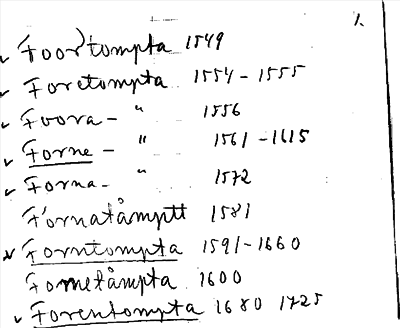 1.
✓ Foortompta 1549
✓ Foretompta 1554-1555
✓ Foora - " 1556
✓ Forne - " 1561-1615
✓ Forna - " 1572
Fornatåmptt 1581
✓ Forntompta 1591-1660
Fometåmpta 1600
✓ Forentompta 1680 1725